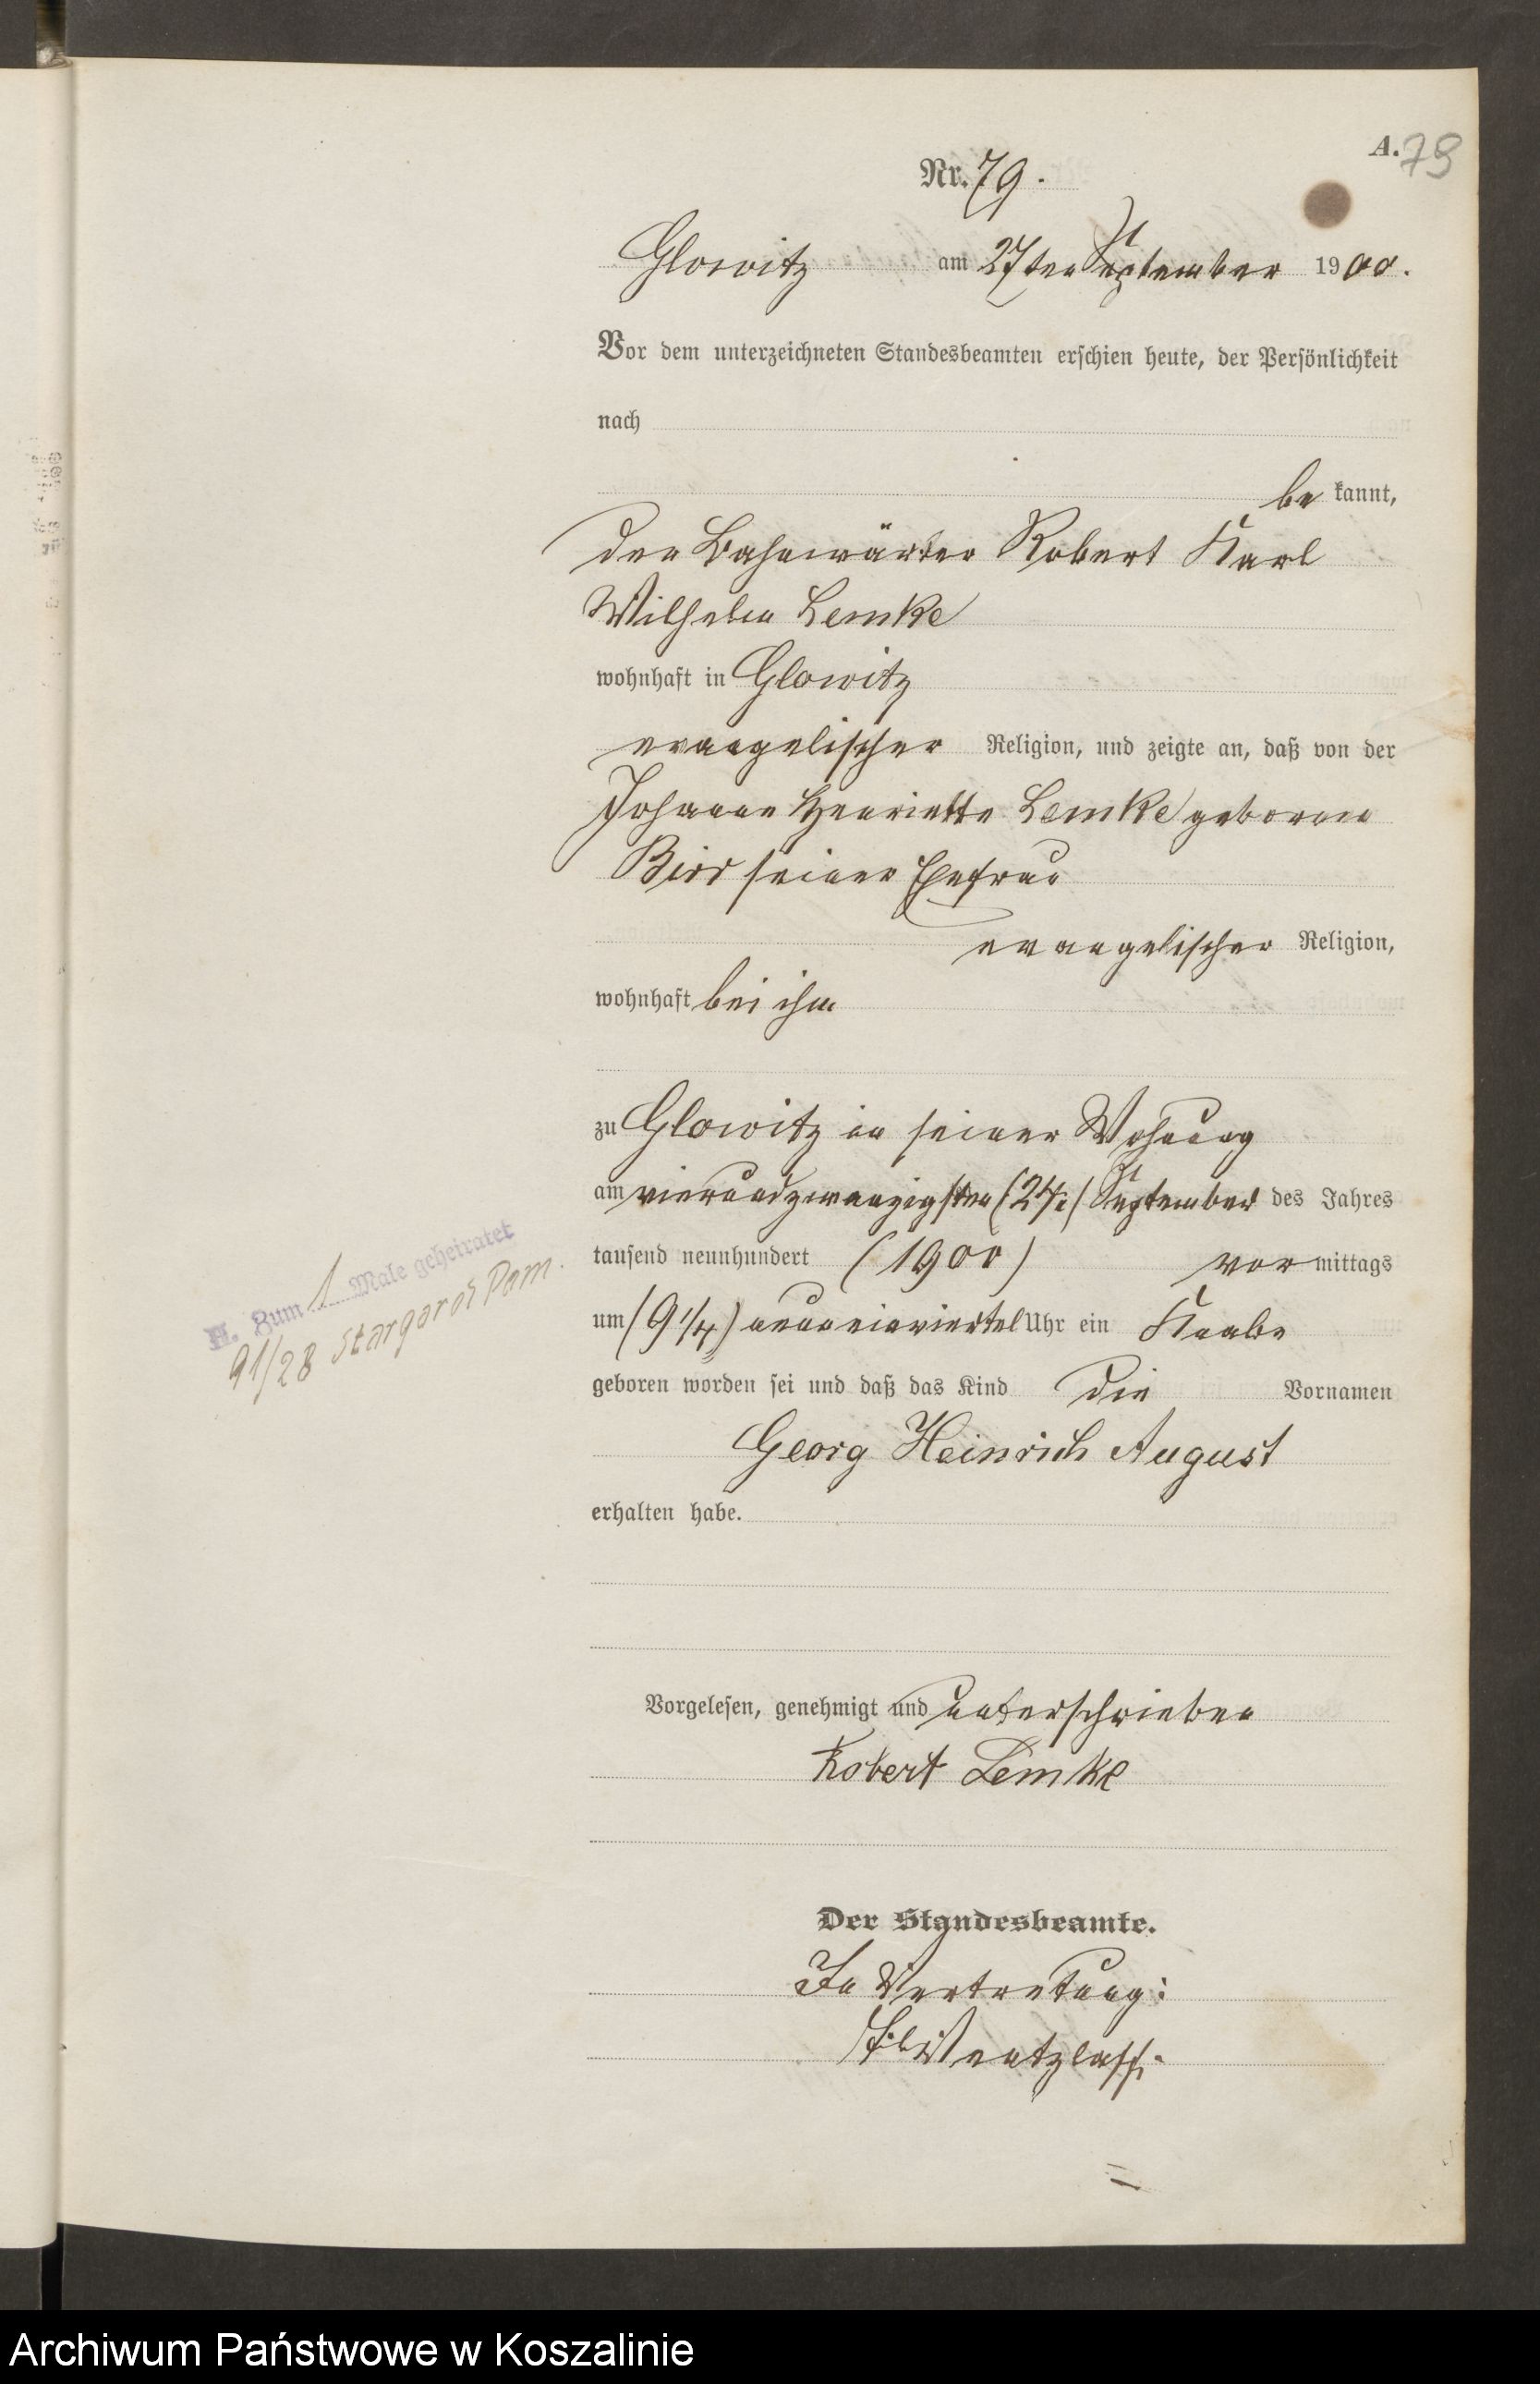 A. 79
Nr. 79.
Glowitz am 27ten September 1900.
Vor dem unterzeichneten Standesbeamten erschien heute, der Persönlichkeit
nach
be kannt,
der Bahnwärter Robert Karl
Wilhelm Lemke
wohnhaft in Glowitz
evangelischer Religion, und zeigte an, daß von der
Johanne Henriette Lemke geborene
seiner Ehefrau
evangelischer Religion,
wohnhaft bei ihm
zu Glowitz in seiner Wohnung
am vierundzwanzigsten (24.) September des Jahres
tausend neunhundert (1900) vor mittags
um (9 1/4) neuneinviertel Uhr ein Knabe
geboren worden sei und daß das Kind die Vornamen
Georg Heinrich August
erhalten habe.
H. Zum 1 Male geheiratet
91/28 Stargard Pom.
Vorgelesen, genehmigt und unterschrieben
Robert Lemke
Der Standesbeamte.
In Vertretung:
Wentzlaff.
Archiwum Państwowe w Koszalinie